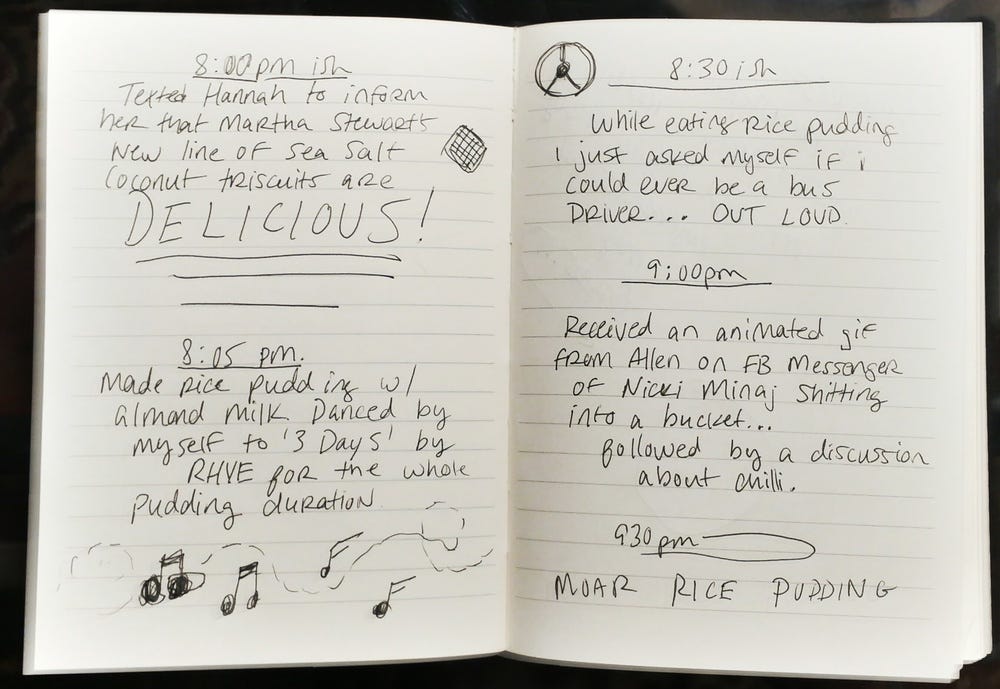 8:00pm ish
Texted Hannah to inform
her that Martha Stewart's
New line of Sea Salt
Coconut triscuits are
DELICIOUS!
8:05 pm.
Made rice pudding w/
almond milk. Danced by
myself to '3 Days' by
RHYE for the whole
pudding duration
8:30 ish
While eating rice pudding
I just asked myself if i
could ever be a bus
DRIVER... OUT LOUD.
9:00pm
Received an animated gif
from Allen on FB Messenger
of Nicki Minaj Shitting
into a bucket...
followed by a discussion
about chilli.
930pm
MOAR RICE PUDDING